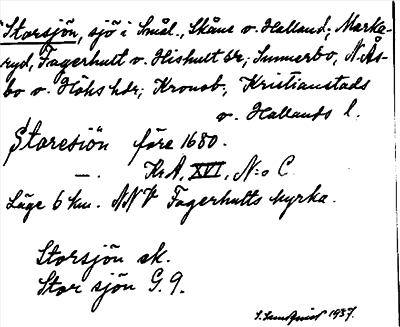 Storsjön, sjö i Smål., Skåne o. Halland; Marka-
ryd, Fagerhult o. Hishult sr; Sunnerbo, N. Ås-
bo o. Höks hdr; Kronob., Kristianstads
o. Hallands l.
Storesiön före 1680.
—. Kr A, XVI, N:o C.
Läge 6 km. NNV Fagerhults kyrka.
Storsjön ek.
Stor sjön G. 9.
1937.